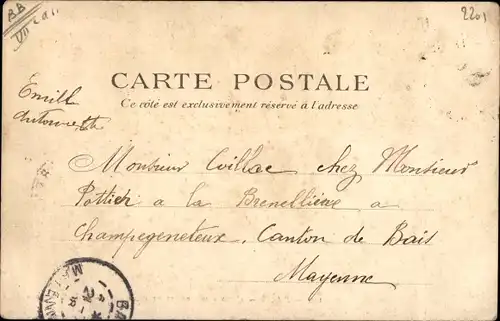 BB
2201
CARTE POSTALE
Ce côté est exclusivement réservé à l'adresse
Emill
Monsieur Coillac chez Monsieur
Pottier a la Brenellière a
Champegeneteux. Canton de Bais
Mayenne
BA
MAYENN